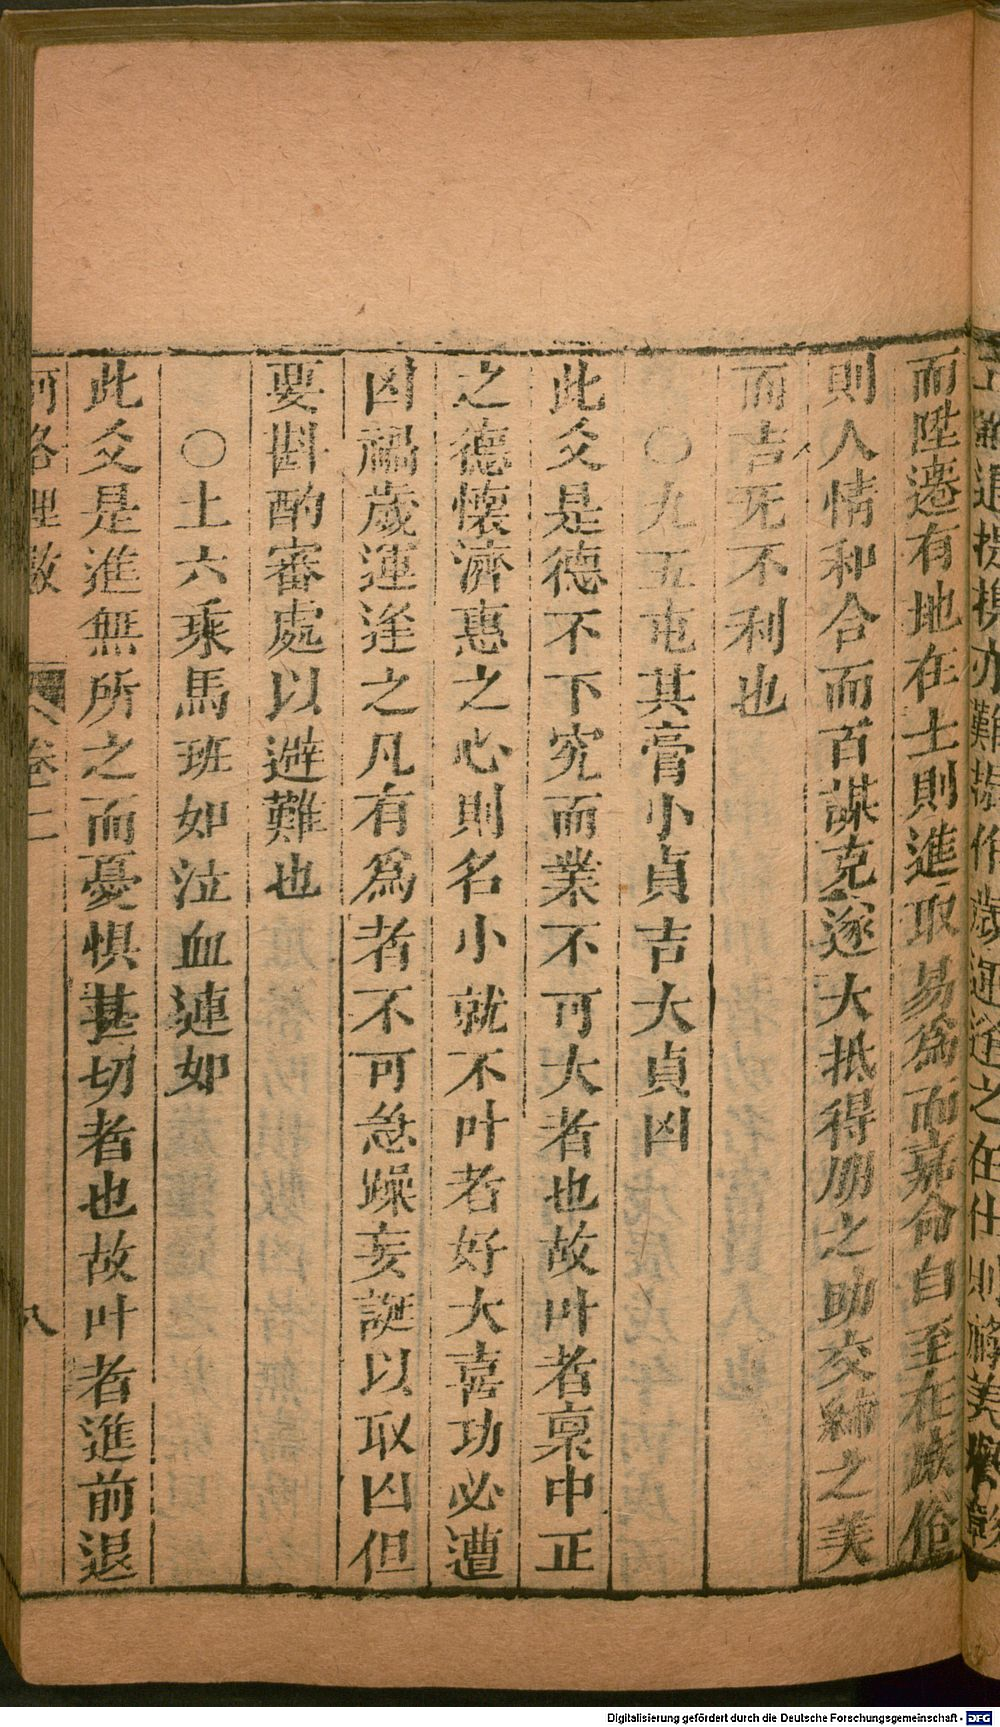 而陞遷有地在士則進取易為而嘉命自至在庶俗
則人情和合而百謀克遂大抵得朋之助交締之美
而吉旡不利也
○九五屯其膏小貞吉大貞凶
此爻是德不下究而業不可大者也故叶者稟中正
之德懷濟惠之心則名小就不叶者好大喜功必遭
凶禍歲運逢之凡有爲者不可急躁妄誕以取凶但
要斟酌審處以避難也
○上六乘馬班如泣血漣如
此爻是進無所之而憂惧甚切者也故叶者進前退
河洛理數 卷二 八
Digitalisierung gefördert durch die Deutsche Forschungsgemeinschaft - DFG